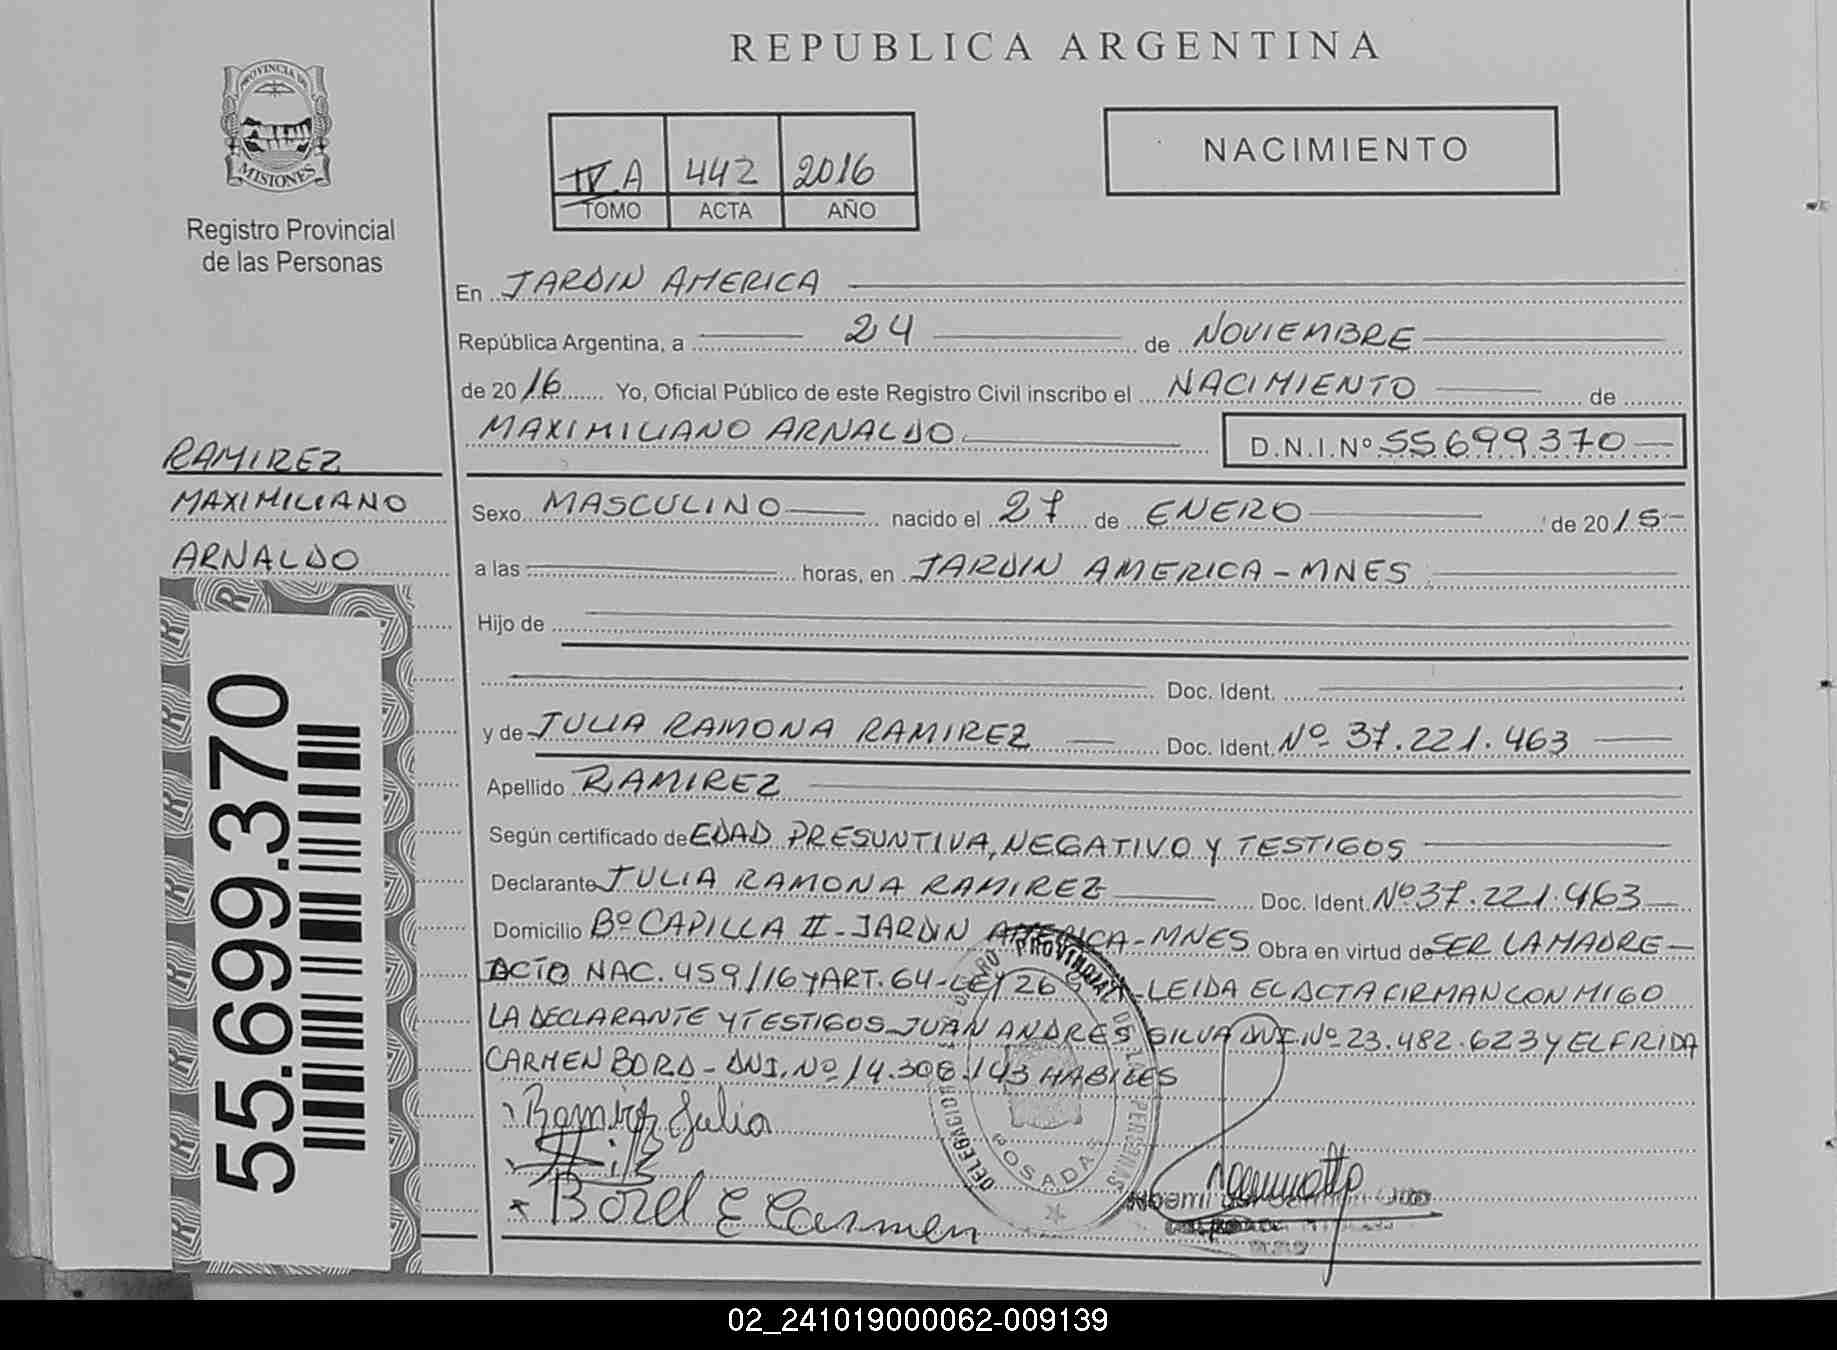 REPUBLICA ARGENTINA
PROVINCIA DE
MISIONES
Registro Provincial
de las Personas
IV A 442 2016
TOMO ACTA AÑO
NACIMIENTO
En JARDIN AMERICA
República Argentina, a 24 de NOVIEMBRE
de 2016 Yo, Oficial Público de este Registro Civil inscribo el NACIMIENTO de
MAXIMILIANO ARNALDO D.N.I.Nº 55699370
RAMIREZ
MAXIMILIANO
ARNALDO
55.699.370
Sexo MASCULINO nacido el 27 de ENERO de 2015
a las horas, en JARDIN AMERICA - MNES
Hijo de
Doc. Ident.
y de JULIA RAMONA RAMIREZ Doc. Ident. Nº 37.221.463
Apellido RAMIREZ
Según certificado de EDAD PRESUNTIVA, NEGATIVO Y TESTIGOS
Declarante JULIA RAMONA RAMIREZ Doc. Ident. Nº 37.221.463
Domicilio Bº CAPILLA II - JARDIN AMERICA - MNES Obra en virtud de SER LA MADRE -
DCTO NAC. 459/16 Y ART. 64 - LEY 26 - LEIDA EL ACTA FIRMAN CONMIGO
LA DECLARANTE Y TESTIGOS JUAN ANDRES SILVA DNI Nº 23.482.623 Y ELFRIDA
CARMEN BORD - DNI. Nº 14.306.143 HABILES
Ramirez Julia
Bord E Carmen
PROVINCIAL DE LAS PERSONAS
DELEGACION
POSADAS
Noemi
02_241019000062-009139